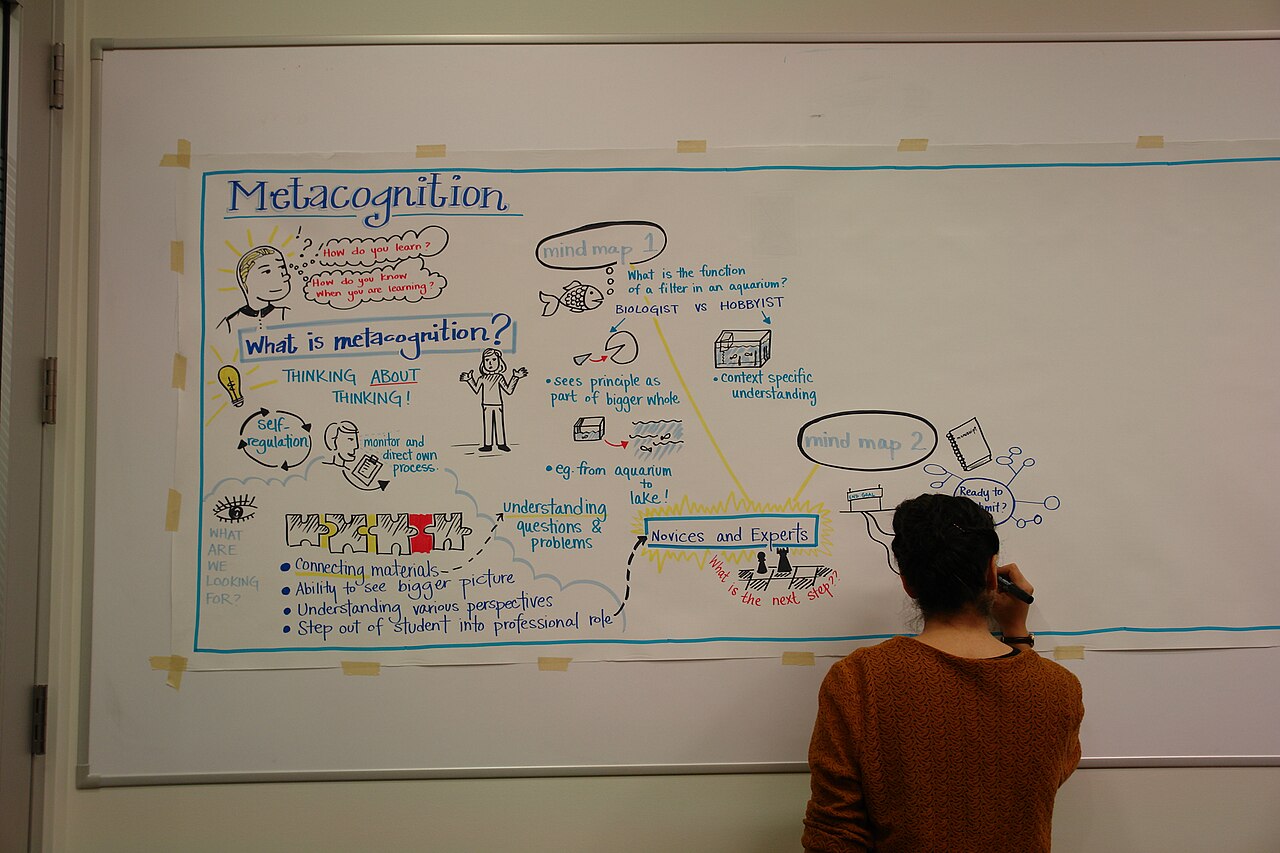 Metacognition
How do you learn?
How do you know
when you are learning?
What is metacognition?
THINKING ABOUT
THINKING!
self-
regulation
monitor and
direct own
process.
WHAT
ARE
WE
LOOKING
FOR?
• Connecting materials
• Ability to see bigger picture
• Understanding various perspectives
• Step out of student into professional role
understanding
questions &
problems
mind map 1
What is the function
of a filter in an aquarium?
BIOLOGIST VS HOBBYIST
• sees principle as
part of bigger whole
• context specific
understanding
• eg. from aquarium
to
lake!
Novices and Experts
What is the next step??
mind map 2
END GOAL
Ready to